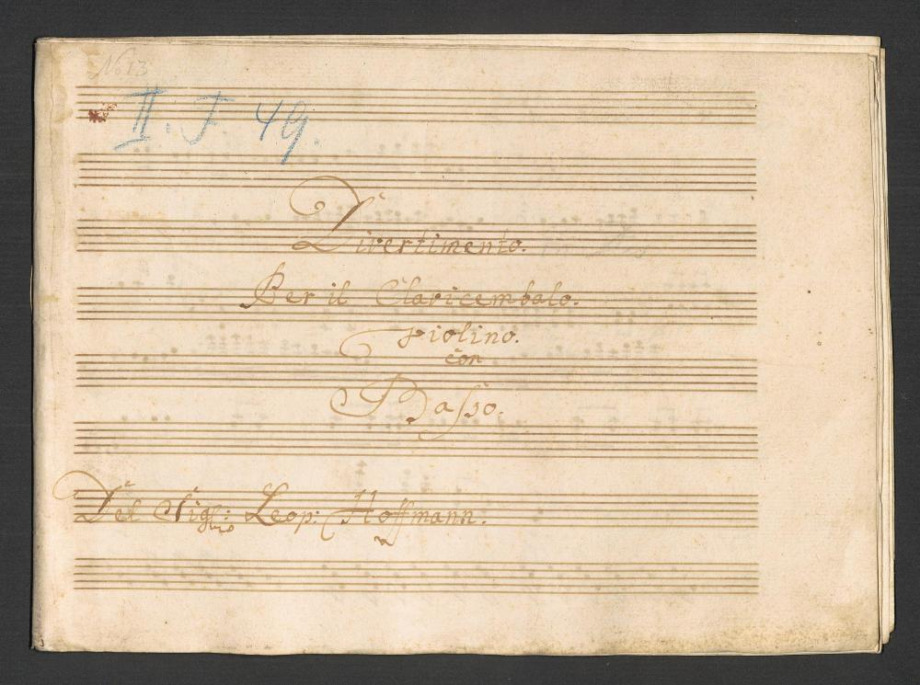 No 13
II. F 49.
Divertimento.
Per il Clavicembalo.
Violino.
con
Basso.
Del Sig: Leop: Hoffmann.